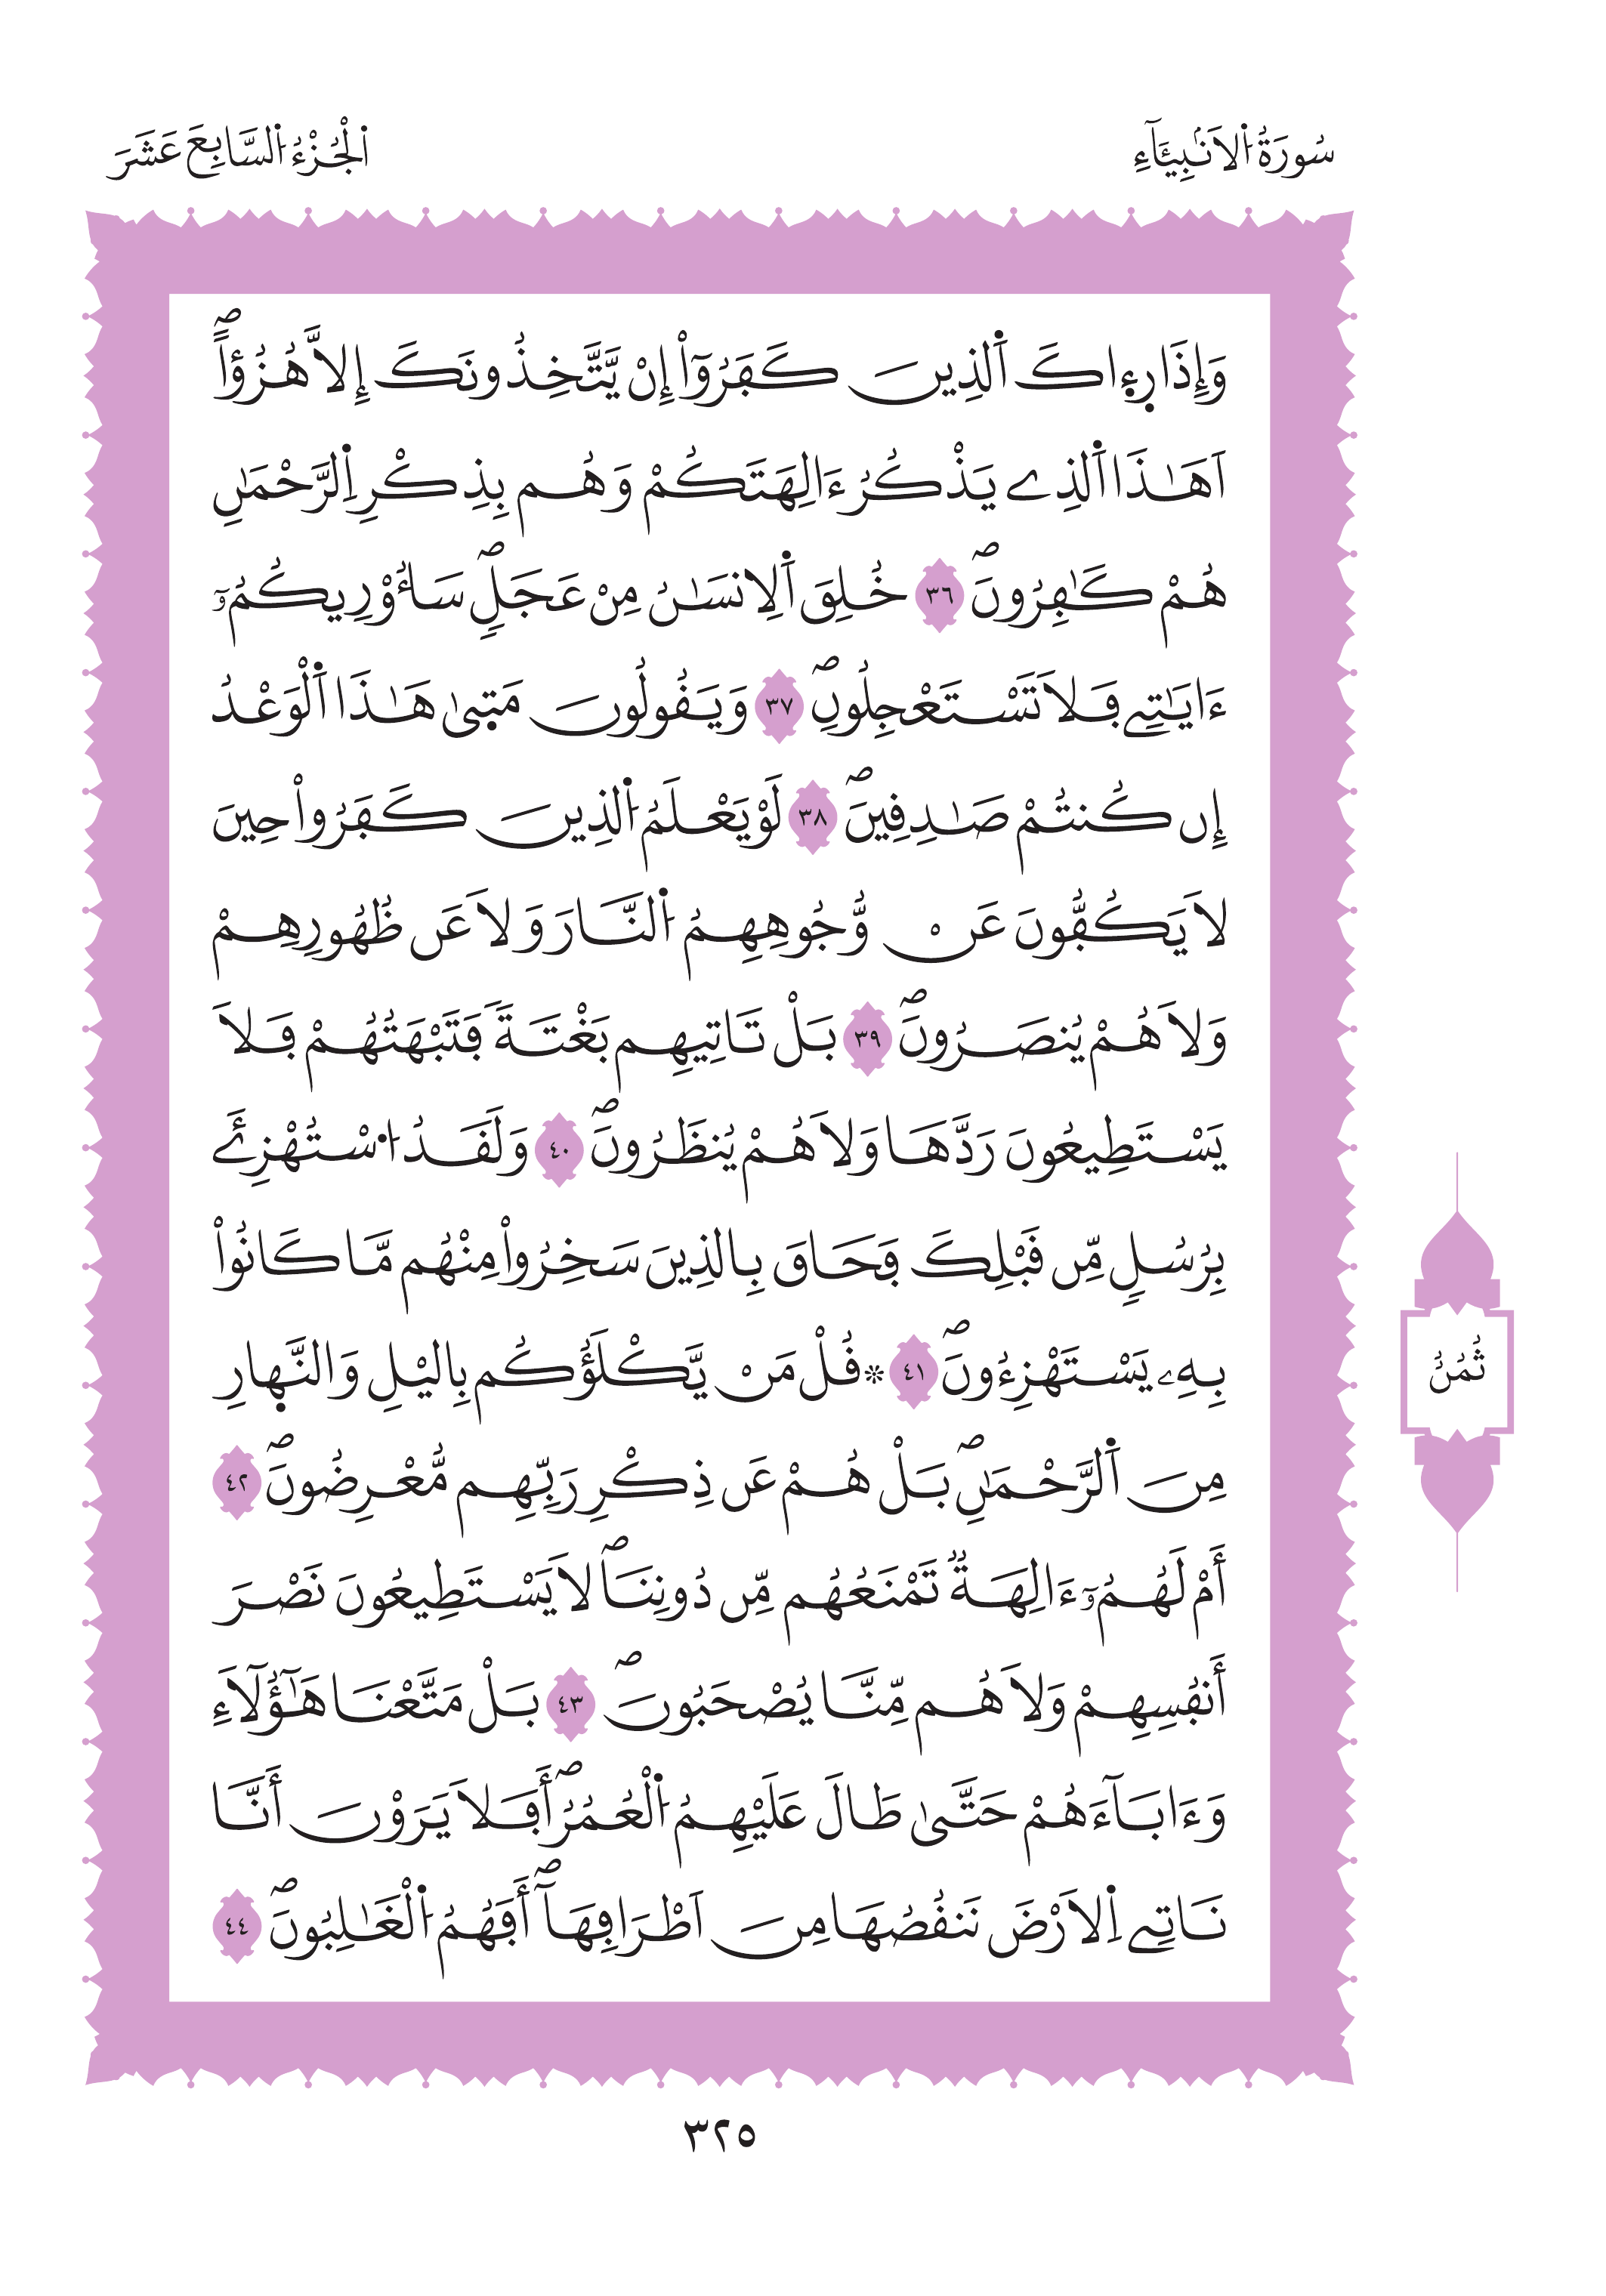 سُورَةُ الاَنۢبِيَآءِ
اَلْجُزْءُ السَّابِعَ عَشَرَ
وَإِذَا ر۪ء۪اكَ اَ۬لذِينَ كَفَرُوٓاْ إِنْ يَّتَّخِذُونَكَ إِلاَّ هُزُؤاًۖ
اَهَٰذَا اَ۬لذِے يَذْكُرُ ءَالِهَتَكُمْ وَهُم بِذِكْرِ اِ۬لرَّحْمَٰنِ
هُمْ كَٰفِرُونَۖ ٣٦ خُلِقَ اَ۬لِانسَٰنُ مِنْ عَجَلٖۖ سَأُوْرِيكُمُۥٓ
ءَايَٰتِے فَلَا تَسْتَعْجِلُونِۖ ٣٧ وَيَقُولُونَ مَت۪يٰ هَٰذَا اَ۬لْوَعْدُ
إِن كُنتُمْ صَٰدِقِينَۖ ٣٨ لَوْ يَعْلَمُ اُ۬لذِينَ كَفَرُواْ حِينَ
لَا يَكُفُّونَ عَنْ وُّجُوهِهِمُ اُ۬لنَّارَ وَلَا عَن ظُهُورِهِمْ
وَلَا هُمْ يُنصَرُونَۖ ٣٩ بَلْ تَاتِيهِم بَغْتَةٗ فَتَبْهَتُهُمْ فَلَا
يَسْتَطِيعُونَ رَدَّهَا وَلَا هُمْ يُنظَرُونَۖ ٤٠ وَلَقَدُ اُ۟سْتُهْزِئَ
بِرُسُلٖ مِّن قَبْلِكَ فَحَاقَ بِالذِينَ سَخِرُواْ مِنْهُم مَّا كَانُواْ
بِهِۦ يَسْتَهْزِءُونَۖ ٤١ ۞ قُلْ مَنْ يَّكْلَؤُكُم بِاليْلِ وَالنَّه۪ارِ
مِنَ اَ۬لرَّحْمَٰنِۖ بَلْ هُمْ عَن ذِكْرِ رَبِّهِم مُّعْرِضُونَۖ ٤٢
أَمْ لَهُمُۥٓ ءَالِهَةٞ تَمْنَعُهُم مِّن دُونِنَاۖ لَا يَسْتَطِيعُونَ نَصْرَ
أَنفُسِهِمْ وَلَا هُم مِّنَّا يُصْحَبُونَۖ ٤٣ بَلْ مَتَّعْنَا هَٰٓؤُلَآءِ
وَءَابَآءَهُمْ حَتَّىٰ طَالَ عَلَيْهِمُ اُ۬لْعُمُرُۖ أَفَلَا يَرَوْنَ أَنَّا
نَاتِے اِ۬لَارْضَ نَنقُصُهَا مِنَ اَطْرَافِهَآۖ أَفَهُمُ اُ۬لْغَٰلِبُونَۖ ٤٤
ثُمُنُ
٣٢٥